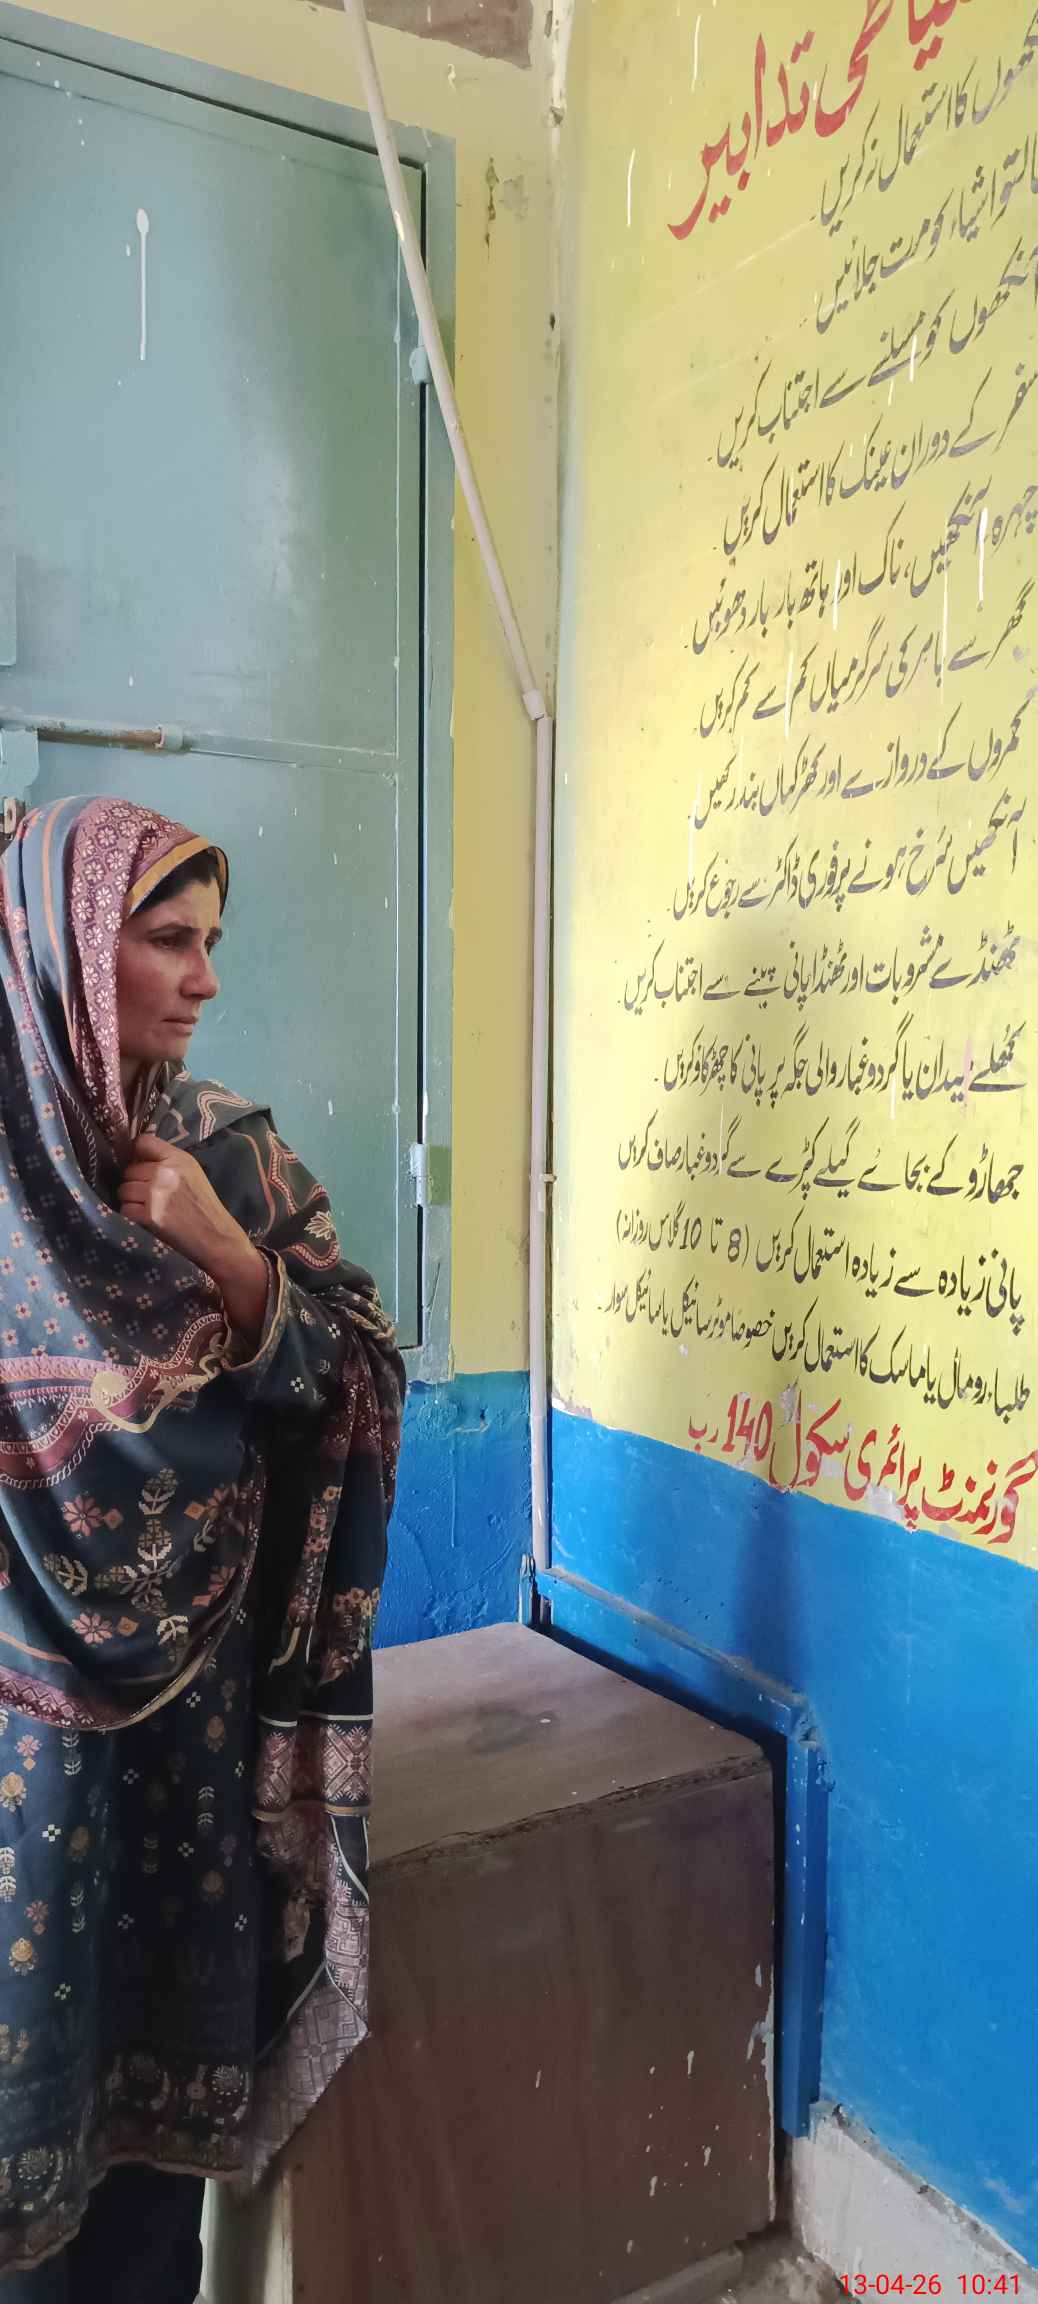 تدابیر
کا استعمال نہ کریں
اشیاء کو مت جلائیں
آنکھوں کو مسلنے سے اجتناب کریں
سفر کے دوران عینک کا استعمال کریں
چہرہ، آنکھیں، ناک اور ہاتھ بار بار دھوئیں
گھر سے باہر کی سرگرمیاں کم سے کم کریں
کمروں کے دروازے اور کھڑکیاں بند رکھیں
آنکھیں سُرخ ہونے پر فوری ڈاکٹر سے رجوع کریں
ٹھنڈے مشروبات اور ٹھنڈا پانی پینے سے اجتناب کریں
کُھلے میدان یا گردوغبار والی جگہ پر پانی کا چھڑکاؤ کریں
جھاڑو کے بجائے گیلے کپڑے سے گردوغبار صاف کریں
پانی زیادہ سے زیادہ استعمال کریں (8 تا 10 گلاس روزانہ)
طلباء رومال یا ماسک کا استعمال کریں خصوصاً موٹر سائیکل یا سائیکل سوار
گورنمنٹ پرائمری سکول 140 رب
13-04-26 10:41